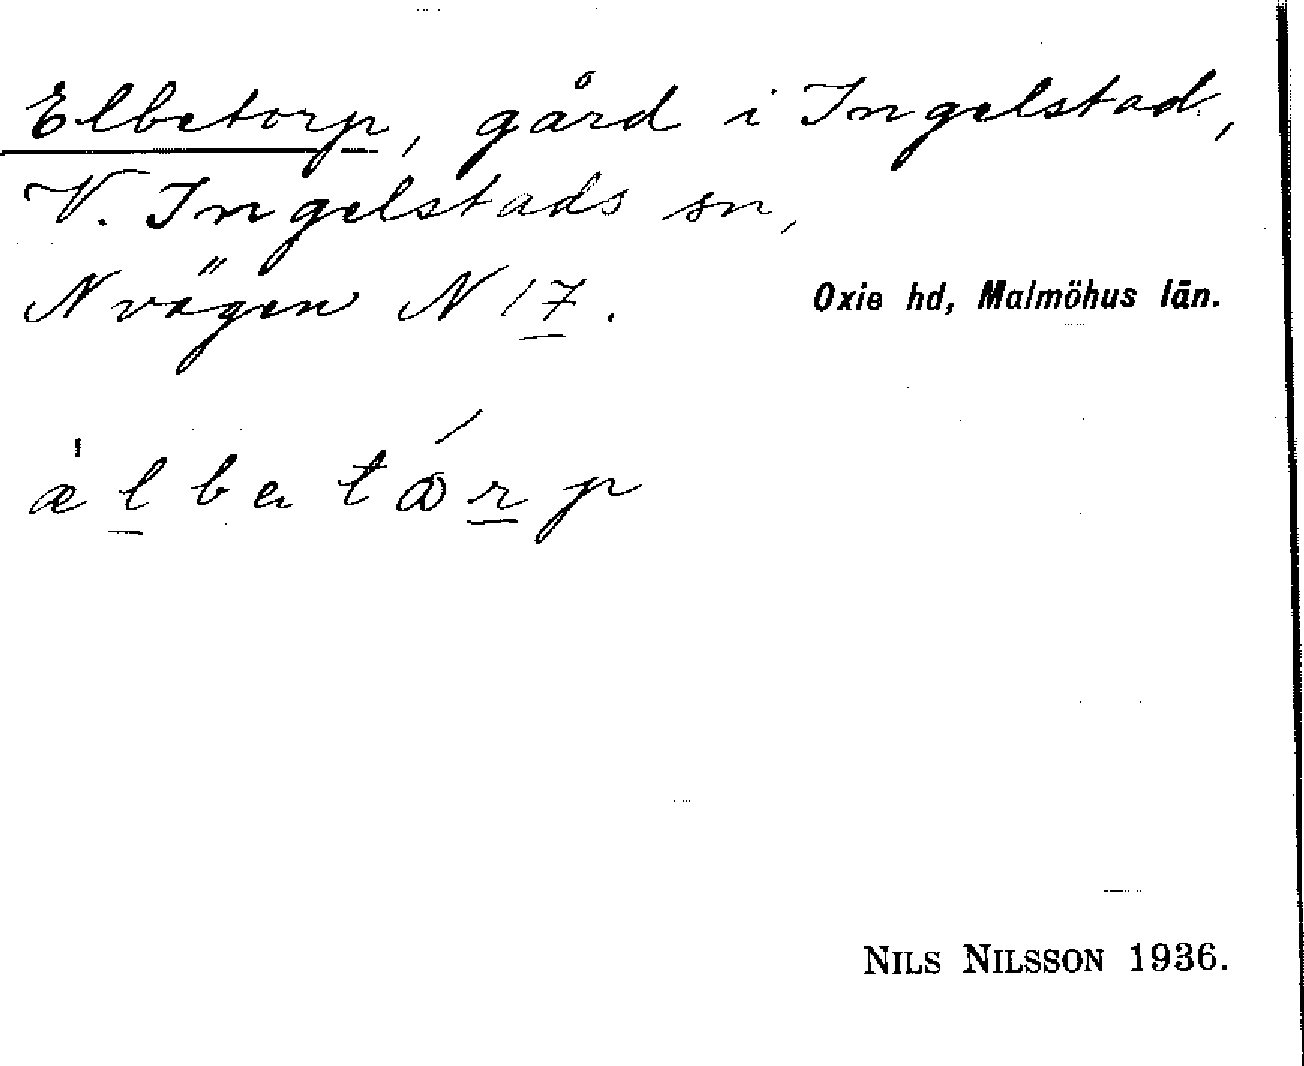 Elbetorp, gård i Ingelstad,
V. Ingelstads sn,
N vägen N 17.
Oxie hd, Malmöhus län.
æ̍l̲bɐtǻr̲p
NILS NILSSON 1936.